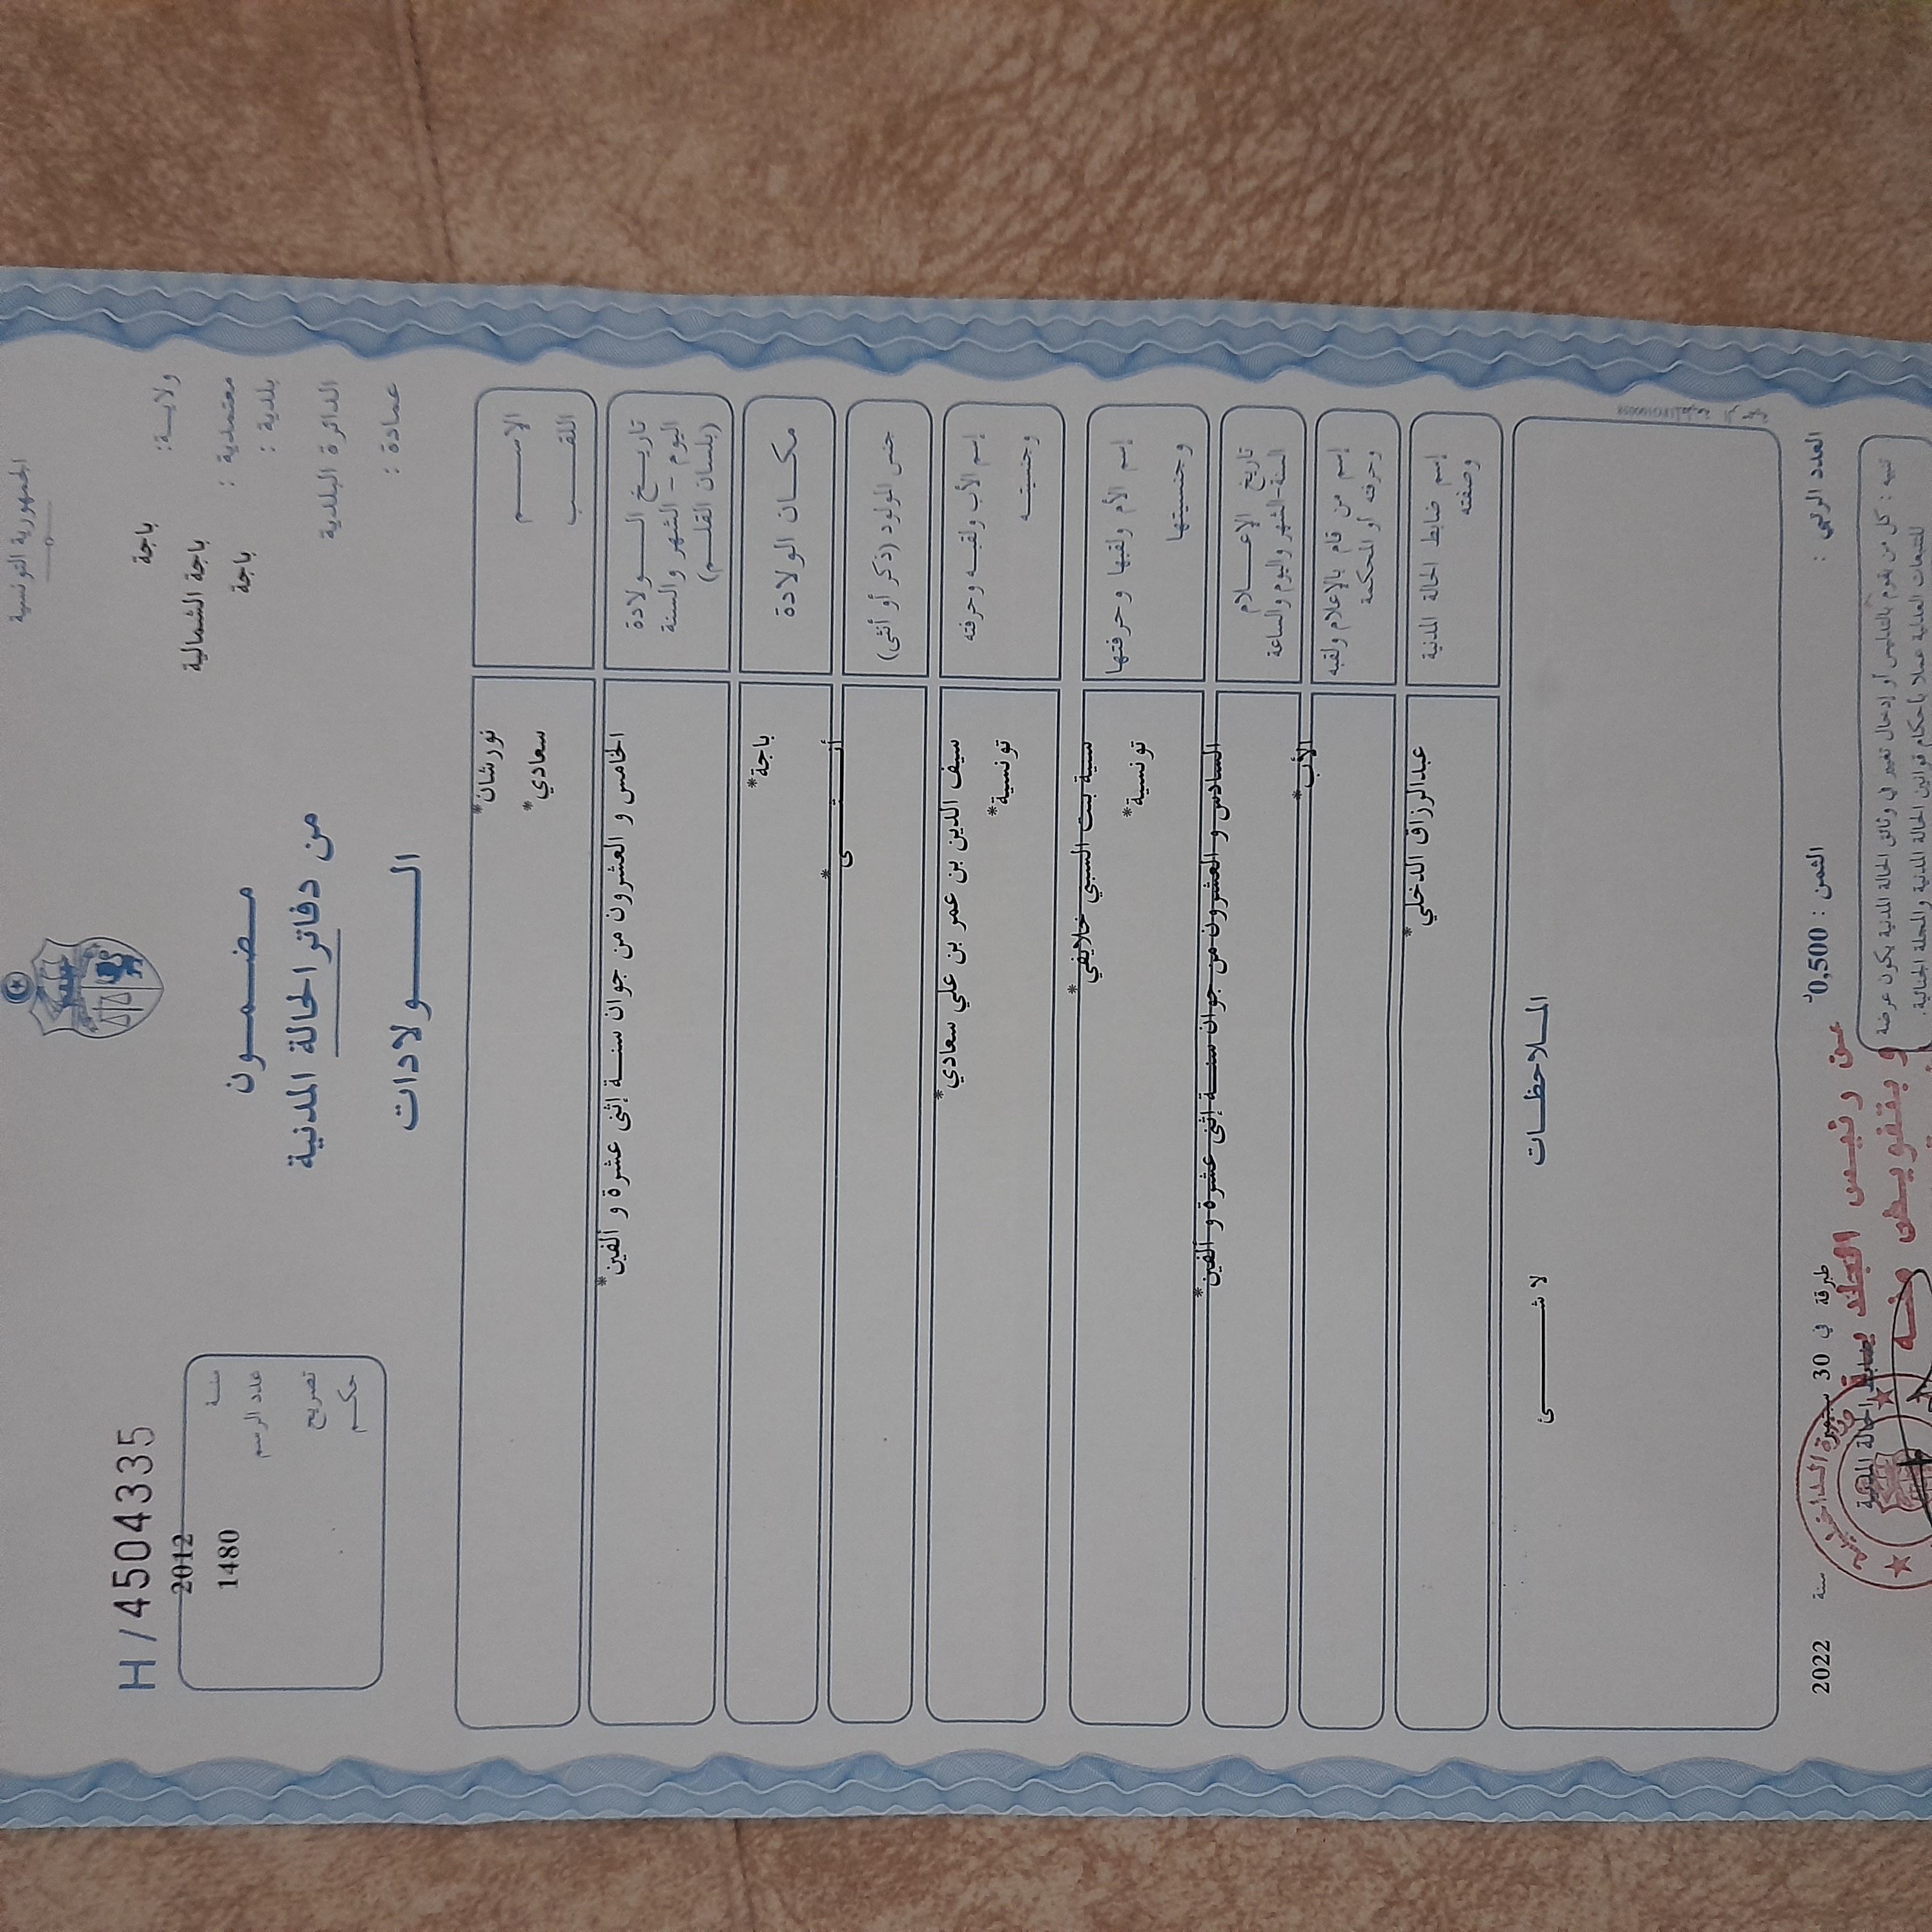 الجمهورية التونسية
ولايــة: باجة
معتمدية : باجة الشمالية
بلدية : باجة
الدائرة البلدية
عمادة :
مضمــون
من دفاتر الحالة المدنية
الــولادات
H/4504335
سنــة 2012
عدد الرسم 1480
تصريح
حكم
الإســـم نورشان*
اللقـــب سعادي*
تاريــخ الــولادة الخامس و العشرون من جوان سنــة إثنى عشرة و ألفين*
اليوم - الشهر والسنة
(بلسان القلــم)
مكــان الولادة باجة*
جنس المولود (ذكر أو أنثى) أنــثــى*
إسم الأب ولقبــه وحرفته سيف الدين بن عمر بن علي سعادي*
وجنسيتــه تونسية*
إسم الأم ولقبها وحرفتها سنية بنت السبتي خلايفي*
وجنسيتها تونسية*
تاريخ الإعــلام السادس و العشرون من جوان سنــة إثنى عشرة و ألفين*
السنة-الشهر واليوم والساعة
إسم من قام بالإعلام ولقبه الأب*
وحرفته أو المحكمة
إسم ضابط الحالة المدنية عبدالرزاق الدخلي*
وصفته
الملاحظــات
لا شــــئ
العدد الرتبي :
الثمن : 0,500د
طبرقة في 30 سبتمبر سنة 2022
ضابط الحالة المدنية
تنبيه : كل من يقوم بالتدليس أو إدخال تغيير في وثائق الحالة المدنية يكون عرضة
للتتبعات العدلية عملا بأحكام قوانين الحالة المدنية والمجلة الجنائية.
عن رئيس البلدية
و بتفويض منه
وزارة الداخلية